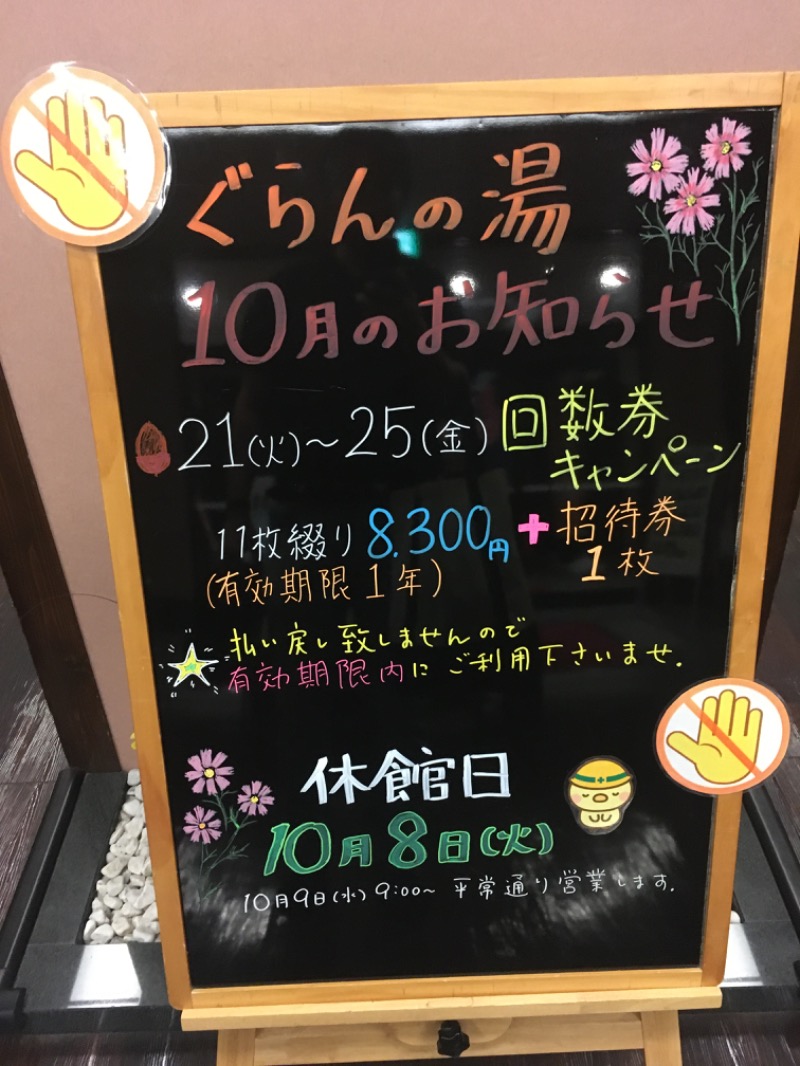 ぐらんの湯
10月のお知らせ
21(火)〜25(金) 回数券
キャンペーン
11枚綴り 8,300円 + 招待券
1枚
(有効期限1年)
払い戻し致しませんので
有効期限内に ご利用下さいませ.
休館日
10月8日(火)
10月9日(水) 9:00〜 平常通り営業します.